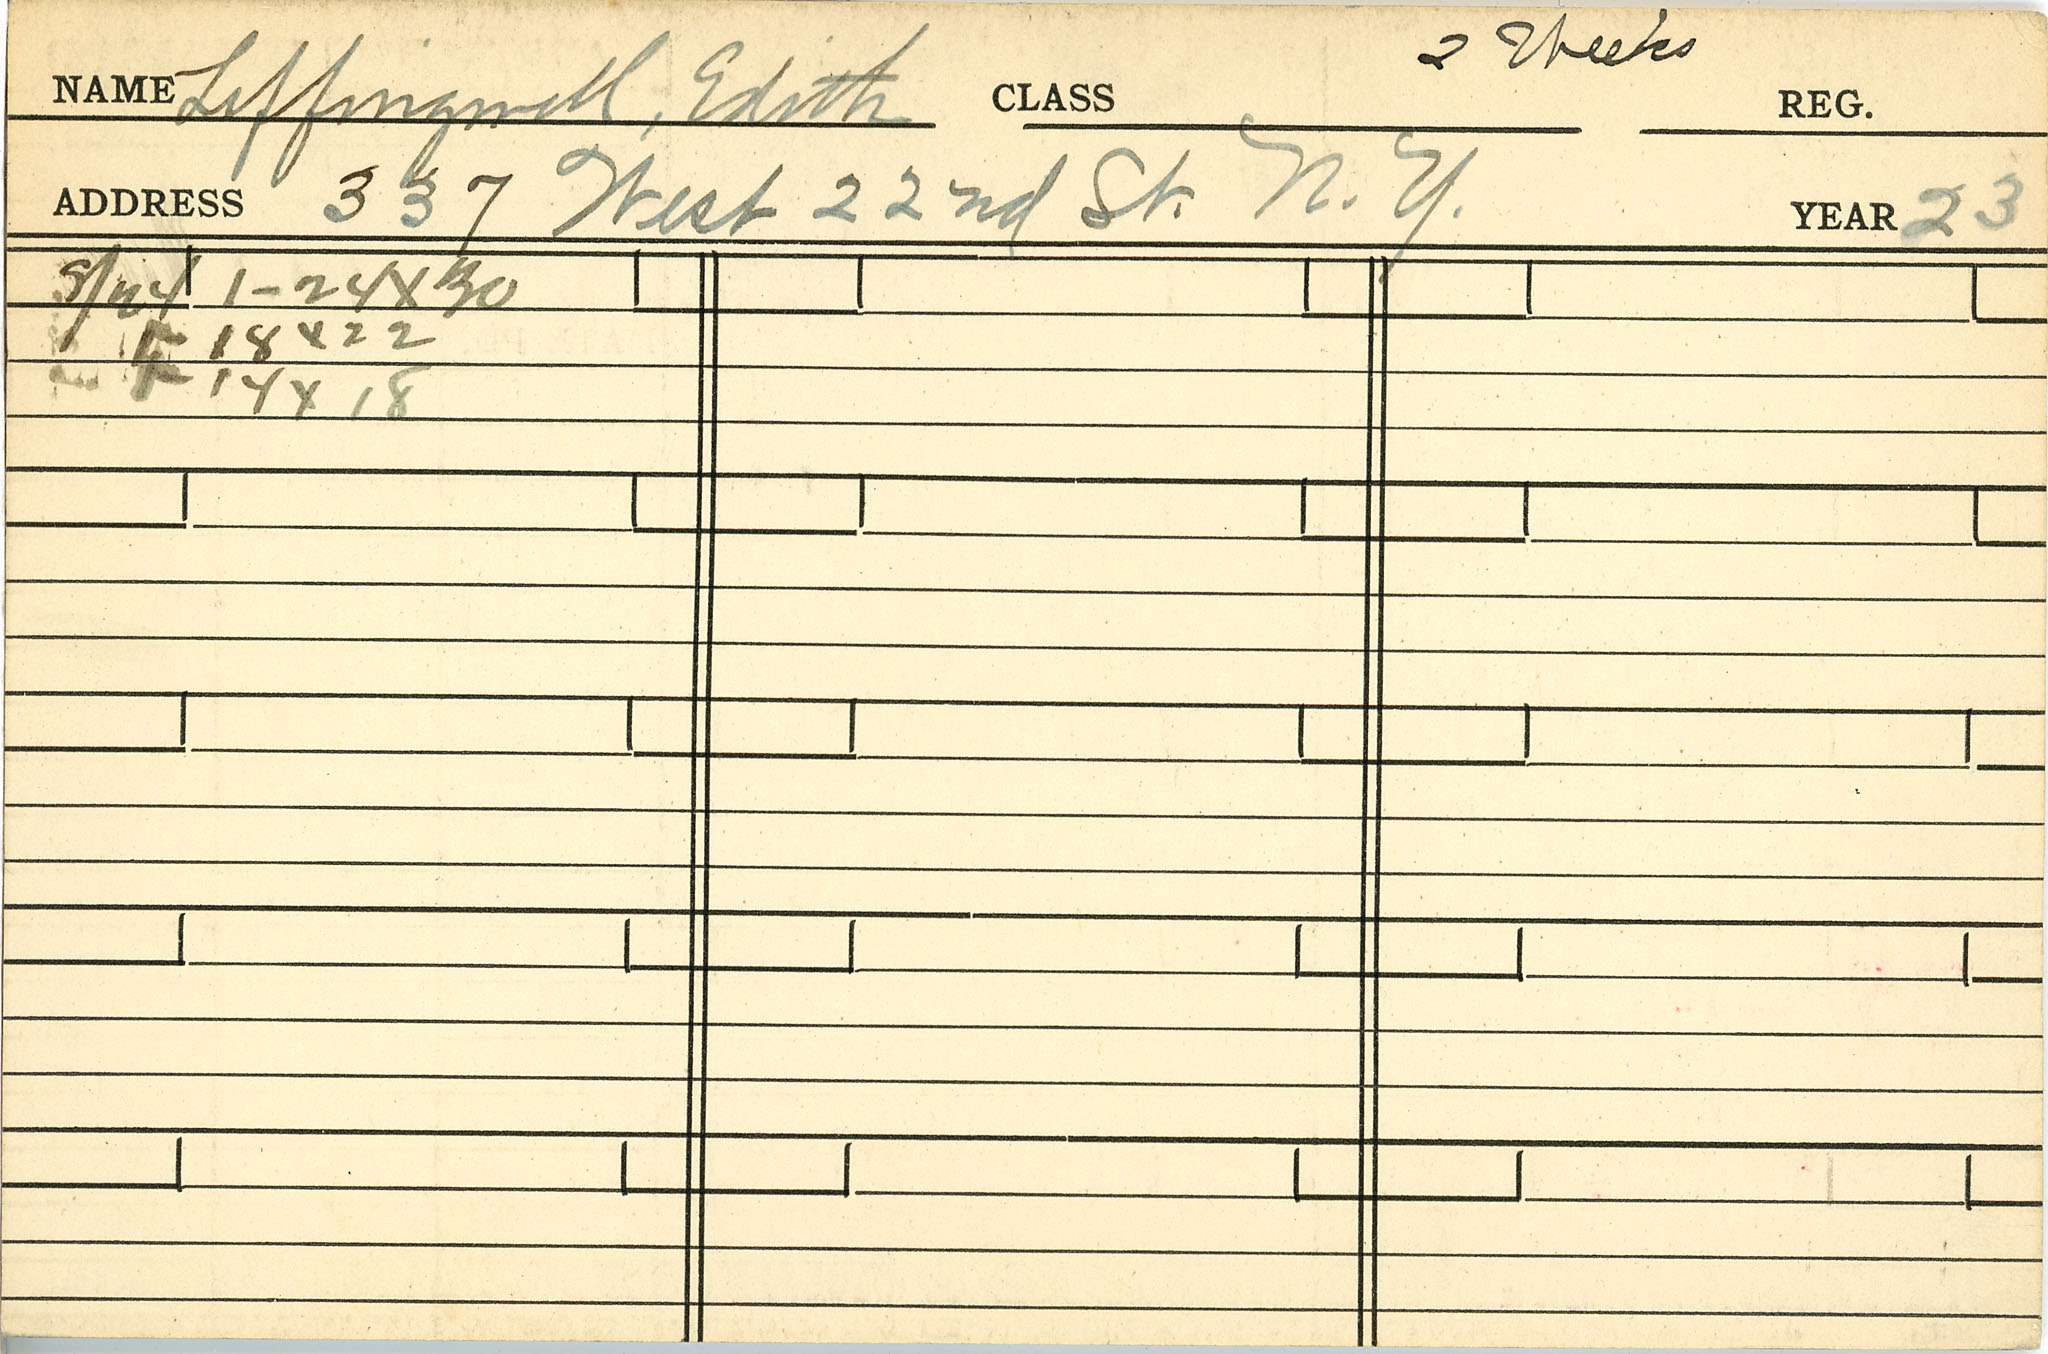 2 Weeks
NAME Leffingwell, Edith CLASS REG.
ADDRESS 337 West 22nd St. N.Y. YEAR 23
1-24x30
18x22
14x18